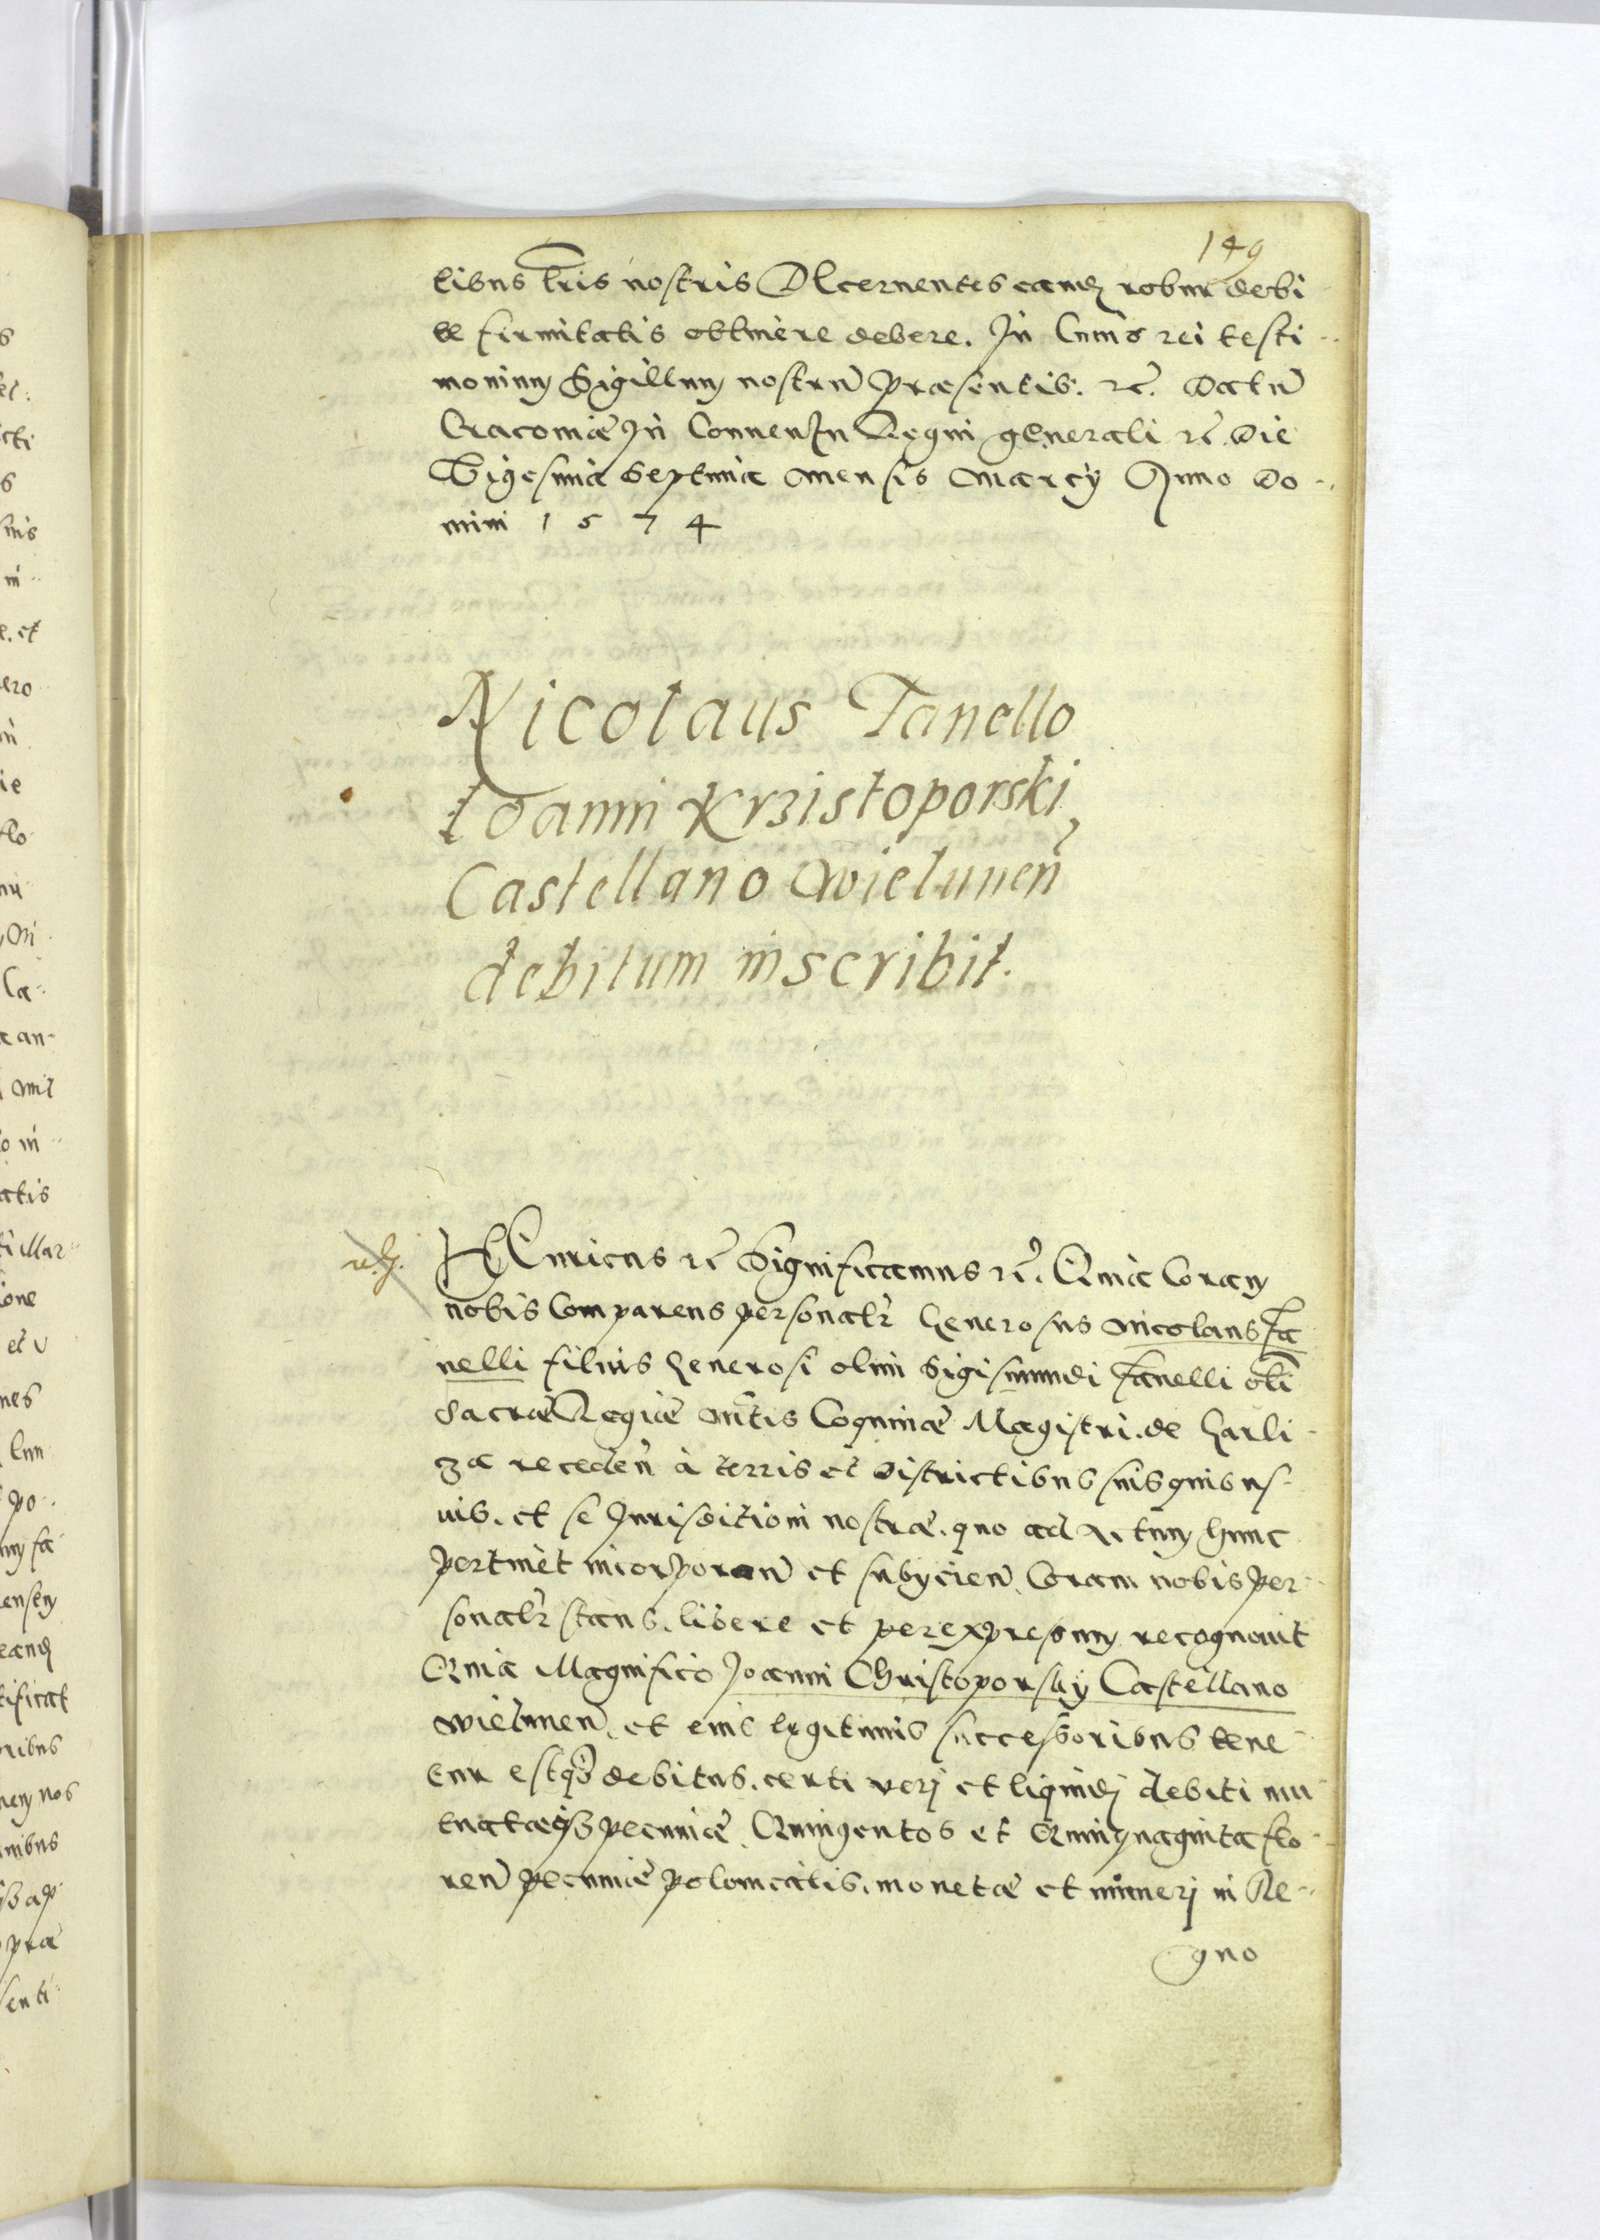 149
tibus lr̃is nostris Decernentes eamq̃ robur debi
tæ firmitatis obtinere debere. In Cuius rei testi
monium Sigillum nostrũ præsentib. rc̃. Datũ
Cracoviæ In Conven̄. In Regni generali rc̃. Die
Vigesima Septima Mensis Marcÿ Anno Do
mini 1574
Nicolaus Fanello
Ioanni Krzistoporski
Castellano Wielunen̄
debitum inscribit.
HEnricus rc̃ Significamus rc̃. Quia Coram
nobis Comparens personalr̃ Generosus Nicolaus Fa
nelli filius Generosi olim Sigismundi Fanelli olĩ
Sacræ Regiæ Mtis Coquinæ Magistri. de Garli
za receden̄ à terris et Districtibus suis quibus
vis. et se Jurisditioni nostræ. quo ad Actum hunc
pertinet incorporan̄ et subycien̄. Coram nobis per
sonalr̃ stans. libere et per expressum recognovit
Quia Magnifico Joanni Christoporsky Castellano
Wielunen̄. et eius legitimis successoribus tene
tur estq̃ debitus. certi verj et liquidj debiti mu
tuatæq̃ pecuniæ. Quingentos et Quinquaginta flo
ren̄ pecuniæ polonicalis. monetæ et numerj in Re
gno